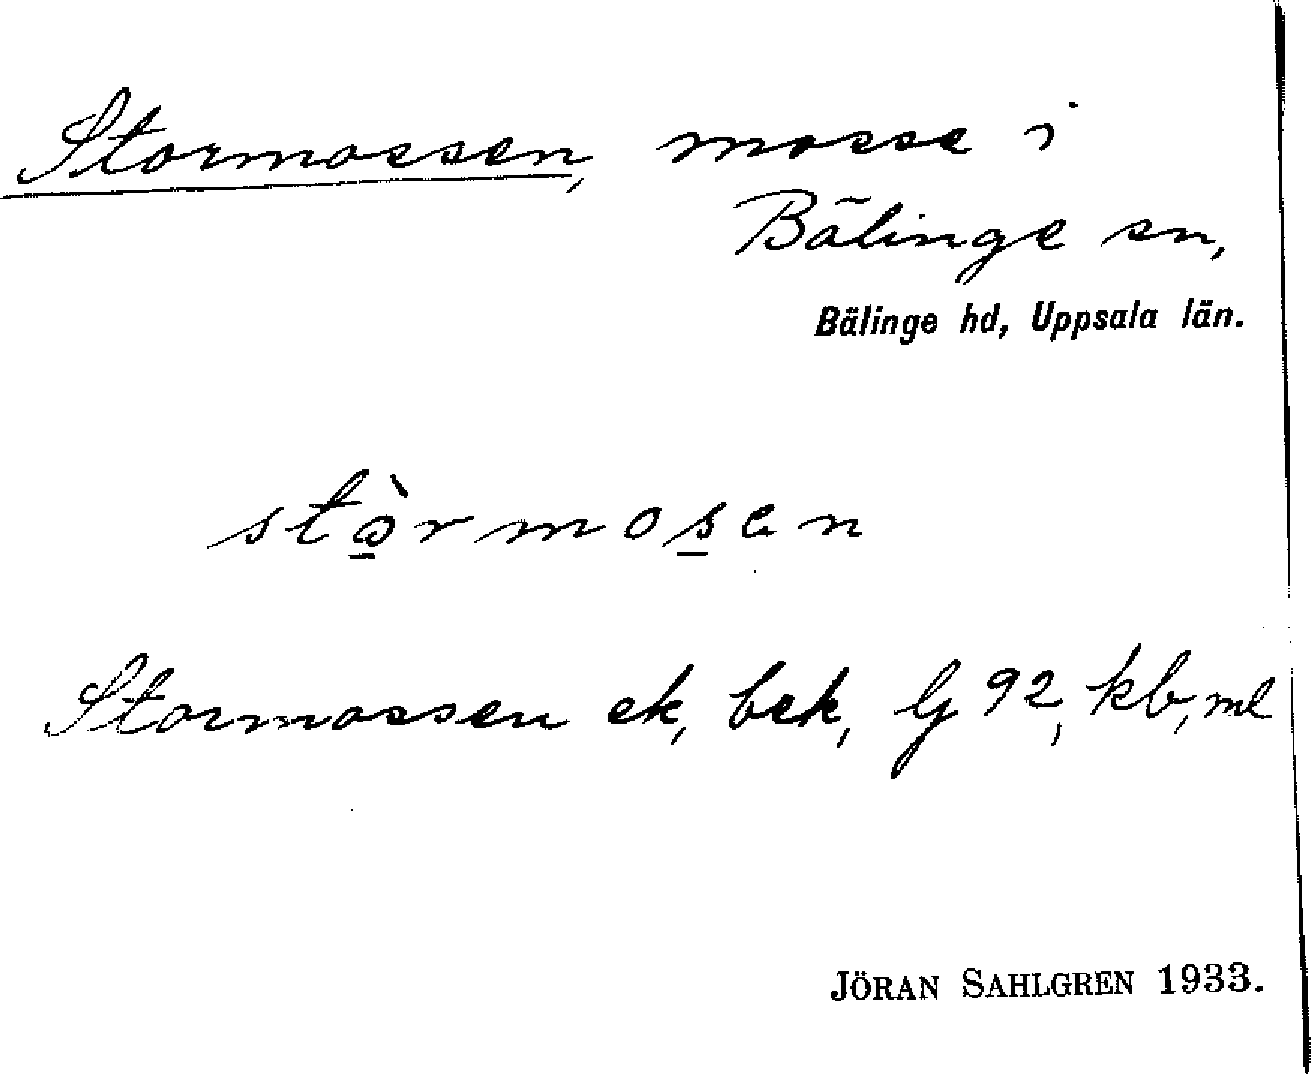 Stormossen, mosse i
Bälinge sn,
Bälinge hd, Uppsala län.
stə̠̀rmos̠en
Stormossen ek, bek, lj 92, kb, ml
JÖRAN SAHLGREN 1933.